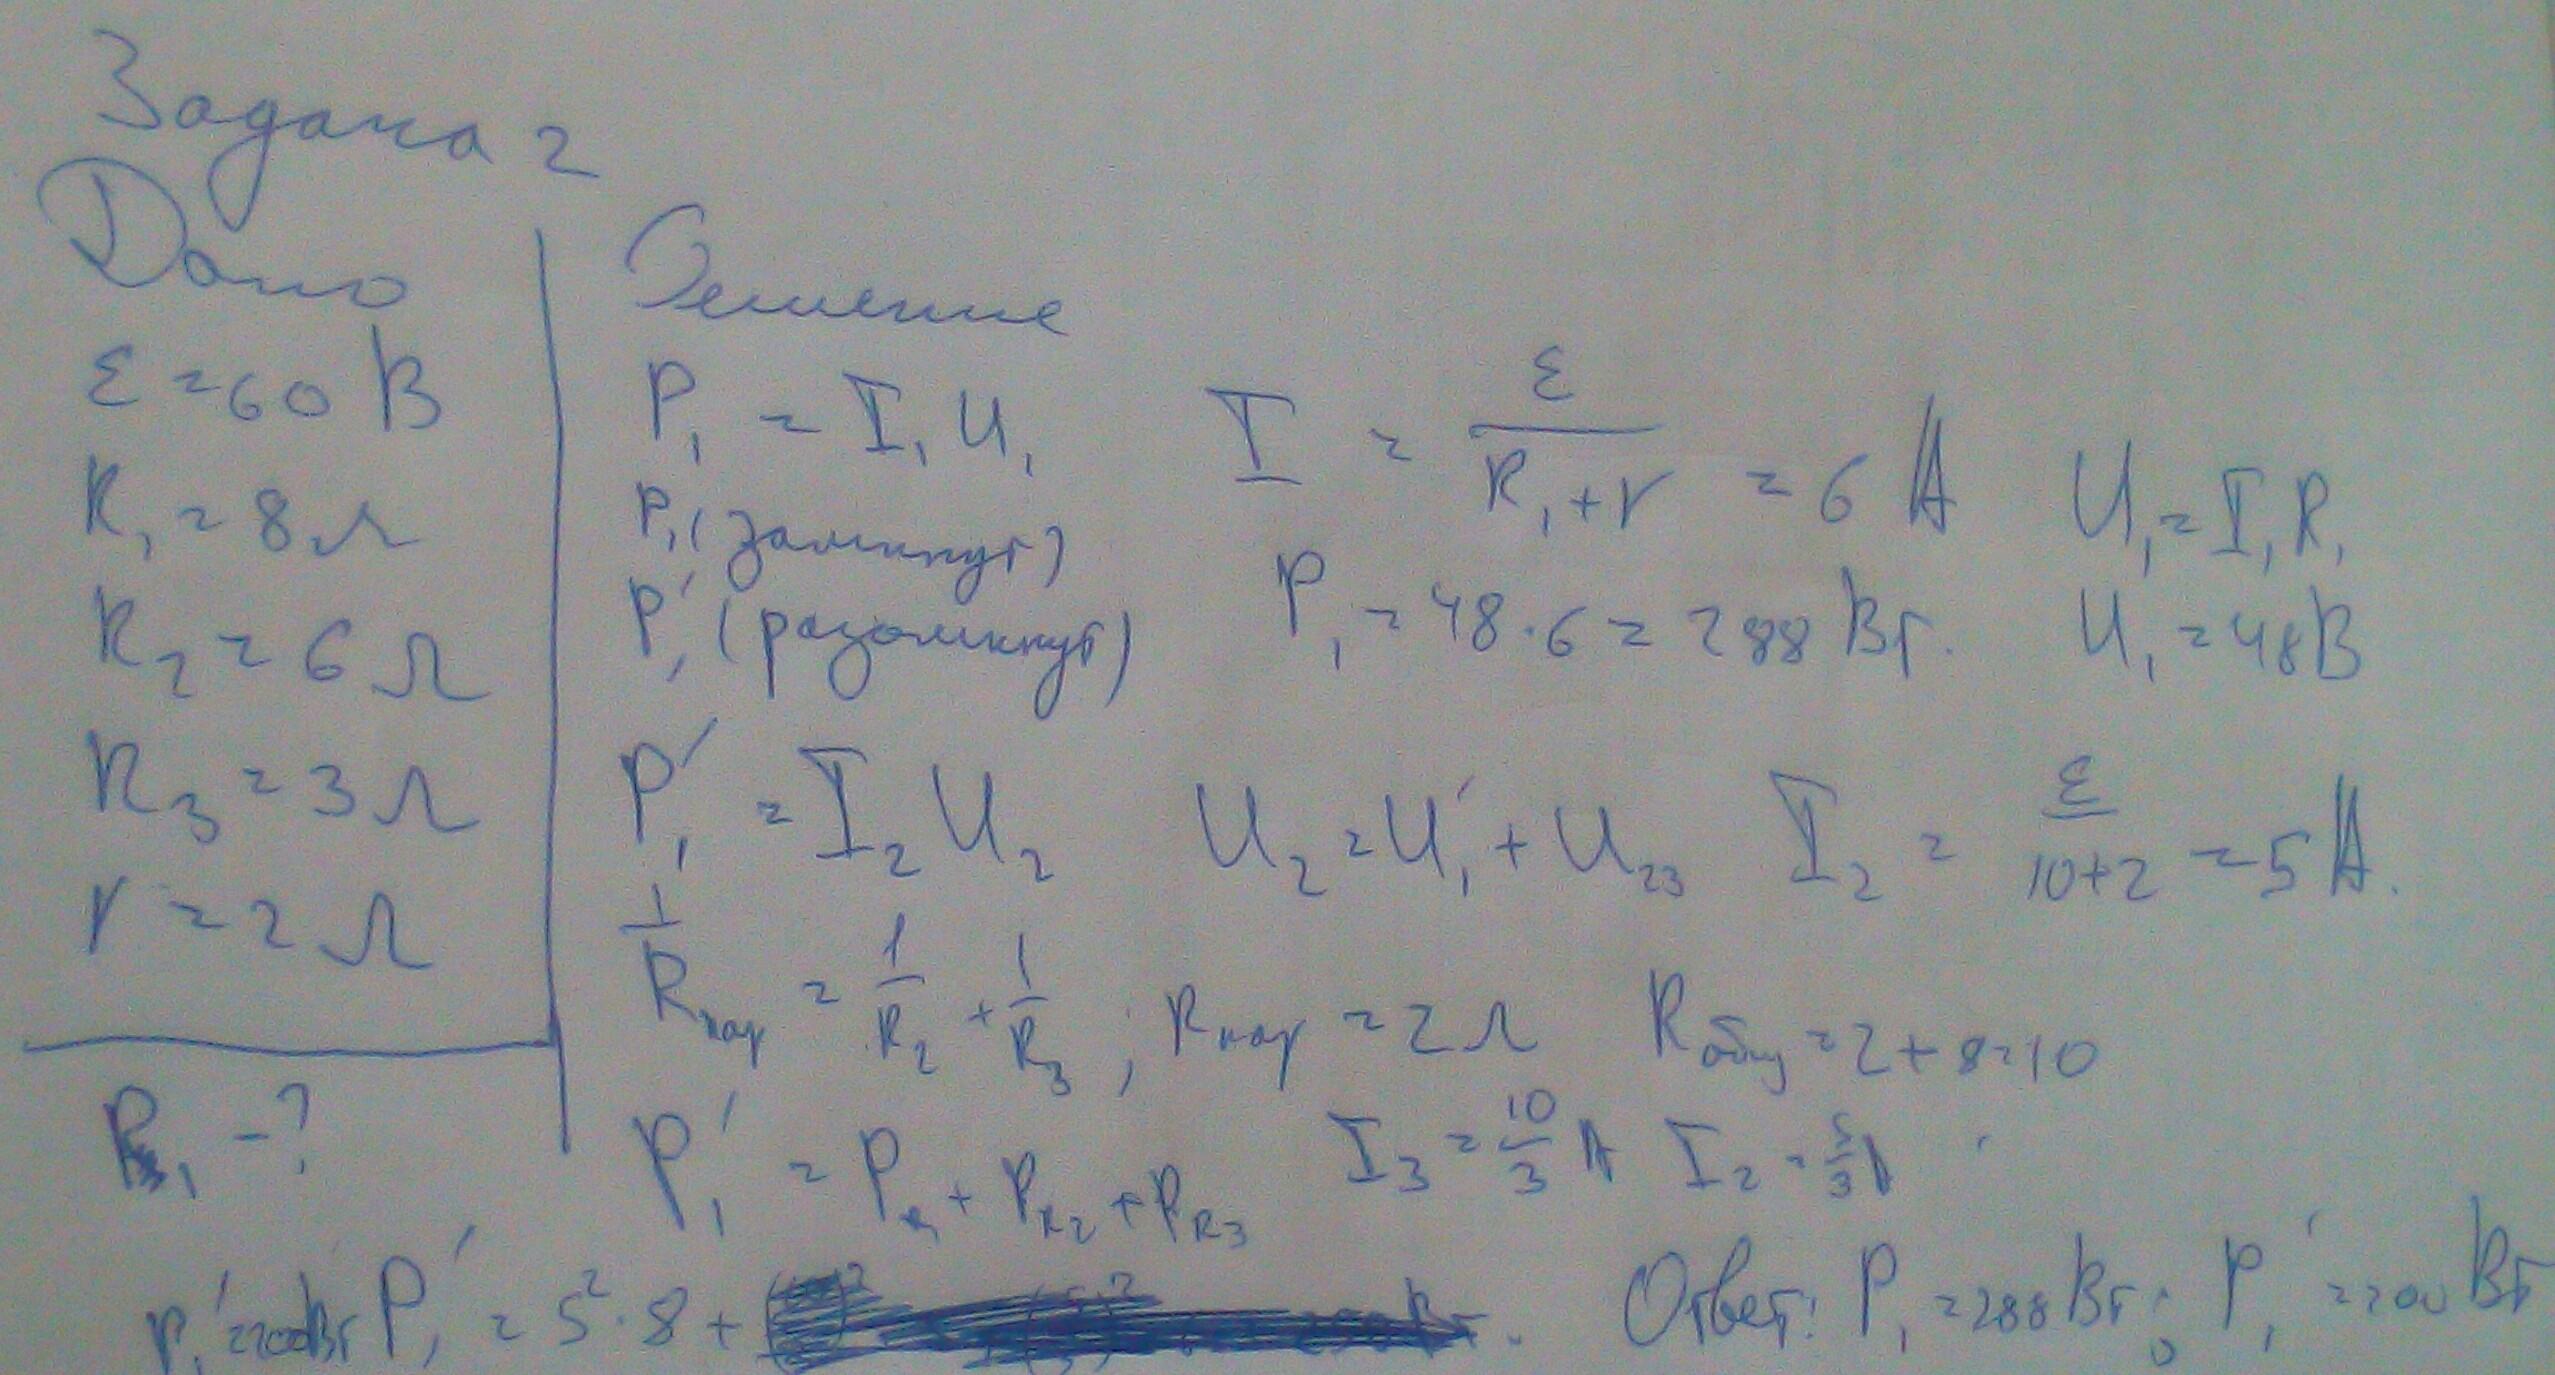 Задача 2
Дано
Решение
ε = 60 В
R₁ = 8 Ω
R₂ = 6 Ω
R₃ = 3 Ω
r = 2 Ω
P₁ - ?
P₁ = I₁ U₁   I = ε / (R₁ + r) = 6 А   U₁ = I₁ R₁
P₁ (замкнут)
P₁' (разомкнут)   P₁ = 48 · 6 = 288 Вт.   U₁ = 48 В
P₁' = I₂ U₂   U₂ = U₁' + U₂₃   I₂ = ε / (10 + 2) = 5 А.
1/Rпар = 1/R₂ + 1/R₃ ; Rпар = 2 Ω   Rобщ = 2 + 8 = 10
P₁' = P_R₁ + P_R₂ + P_R₃   I₃ = 10/3 А   I₂ = 5/3 А
P₁' = 200 Вт   P₁' = 5² · 8 +   Ответ: P₁ = 288 Вт; P₁' = 200 Вт